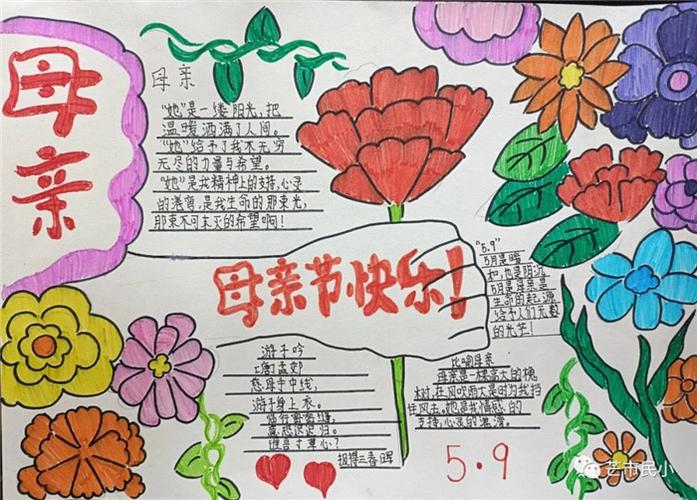 母亲
母亲
"她"是一缕阳光,把
温暖洒满了人间。
"她"给予了我不无穷
无尽的力量与希望。
"她"是我精神上的支持,心灵
的港湾,是我生命的那束光,
那束不可末灭的希望啊!
母亲节快乐!
"5.9"
5月是暖
和,也是阴沉
5月是母亲是
生命的起源
给予人们无数
的光芒!
游子吟
慈母手中线,
游子身上衣。
临行密密缝,
意恐迟迟归。
谁言寸草心?
报得三春晖
比喻母亲
母亲是一棵高大的槐
树,在风吹雨大是时为我挡
住风去。她是我情感的
支持,心灵的港湾。
5.9
芒市民小